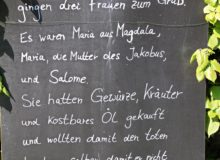 gingen drei Frauen zum Grab.
Es waren Maria aus Magdala,
Maria, die Mutter des Jakobus,
und Salome.
Sie hatten Gewürze, Kräuter
und kostbares Öl gekauft
und wollten damit den toten
damit er nicht